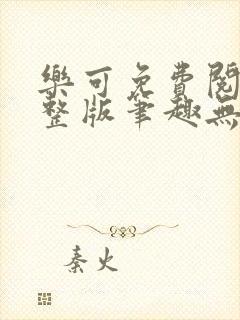 樂可免費閱
整版筆趣無
秦火